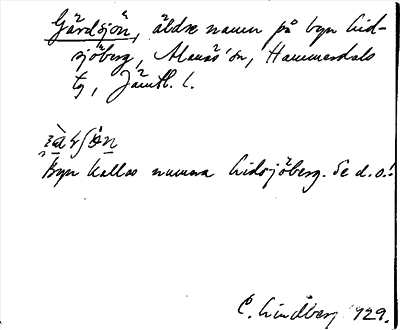 Gärdsjön, äldre namn på byn Lid-
sjöberg, Alanäs' sn, Hammerdals
tg, Jämtl. l.
Byn kallas numera Lidsjöberg. Se d.o.!
C. Lindberg 1929.